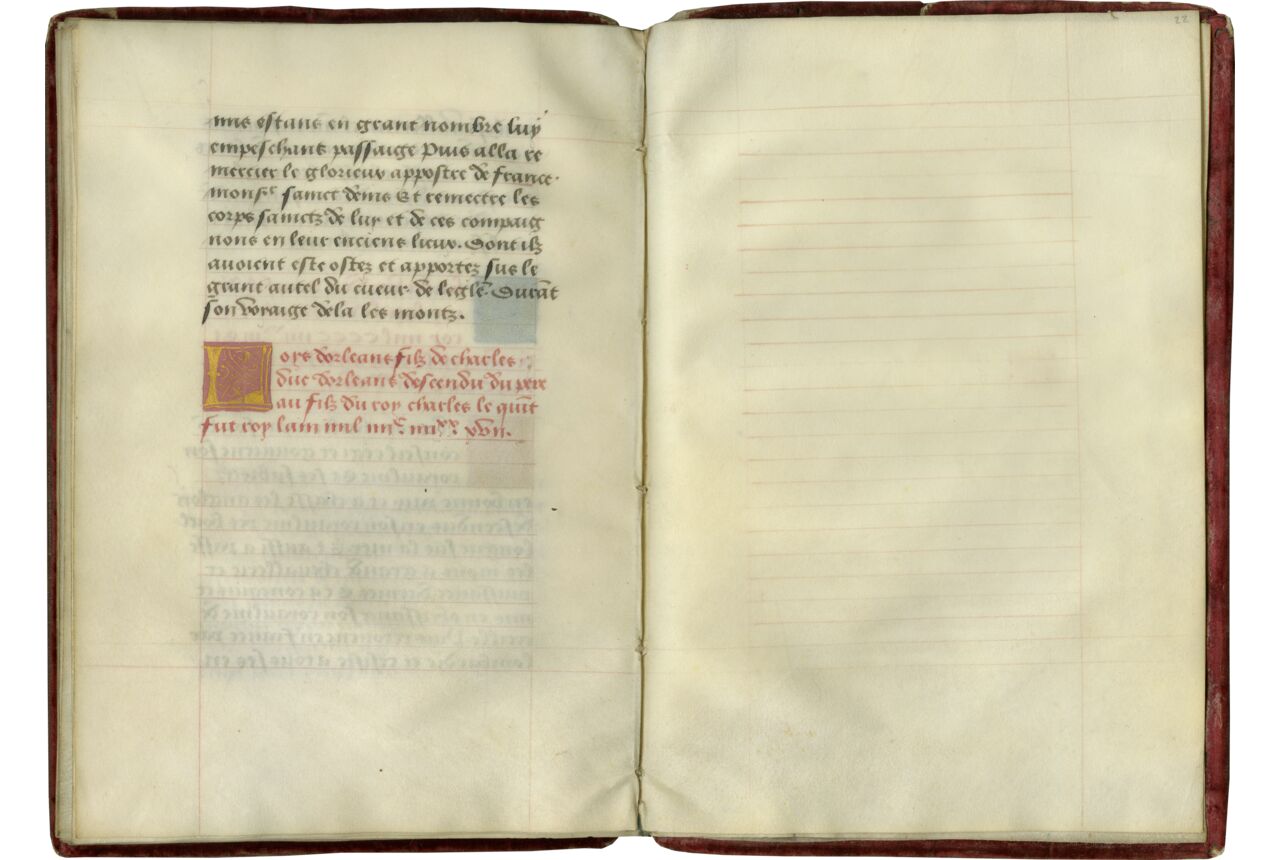 mis estans en grant nombre luy
empeschans passaige Puis alla re
mercier le glorieux appostre de france.
monsr sainct denis Et remectre les
corps sainctz de luy et de ces compaig
nons en leur enciens lieux. Dont ilz
auoient este ostez et apportez sus le
grant autel du cueur de legle. Durāt
son voiaige dela les montz.
Loys dorleans filz de charles
duc dorleans descendu du pere
au filz du roy charles le quīt
fut roy lam mil iiiic iiiixx xvii.
22